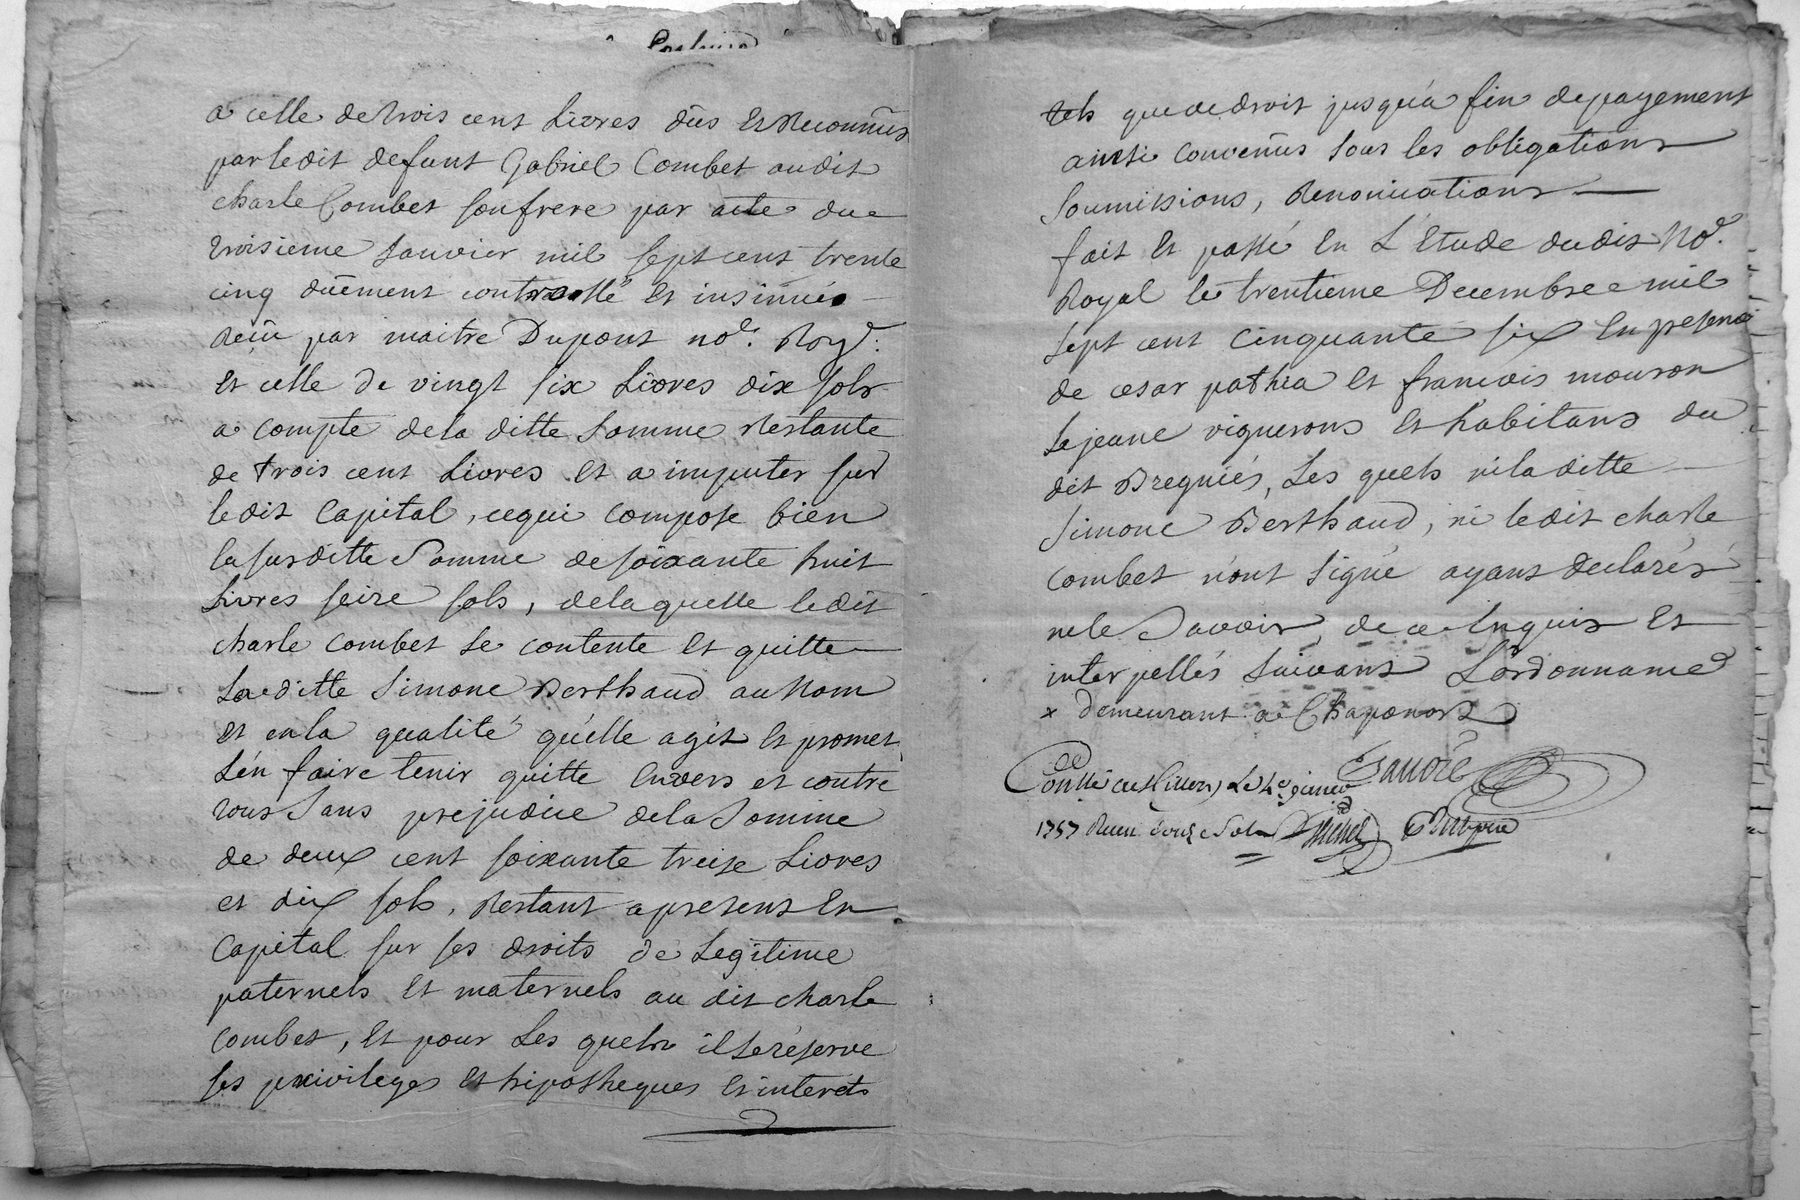 a celle de trois cent Livres dûs Et Reconnûs
par ledit defunt Gabriel Combet audit
charle Combet son frere par acte du
troisieme Janvier mil sept cent trente
cinq dûement controllé Et insinué
Recû par maitre Dupont no.e Roy.l
Et celle de vingt six Livres dix sols
a compte de la ditte Somme Restante
de trois cent Livres Et a imputer sur
ledit Capital, ce qui compose bien
la susditte Somme de soixante huit
Livres seize sols, de laquelle ledit
charle combet se contente Et quitte
La ditte Simone Berthaud au Nom
Et en la qualité qu'elle agit Et promet
L'en faire tenir quitte Envers et contre
tous Sans prejudice de la Somme
de deux cent soixante treize Livres
et dix sols, Restant a present En
Capital sur ses droits de Legitime
paternels Et maternels au dit charle
Combet, Et pour Les quels il se réserve
ses privileges Et hipotheques Et interets
tels que de droit jusqu'a fin de payement
ainsi convenûs sous les obligations
Soumissions, Renonciations
fait Et passé En L'Etude dudit No.e
Royal le trentieme Decembre mil
sept cent cinquante six En presence
de cesar pathia Et francois mouron
Le jeune vignerons Et habitans du
dit Bregniés, Les quels ni la ditte
Simone Berthaud, ni ledit charle
combet n'ont signé ayant declarés
ne le Savoir, de ce Enquis Et
interpellés suivant L'ordonnance
x demeurant a Chaponost
1757 Receu douze Sols Michel